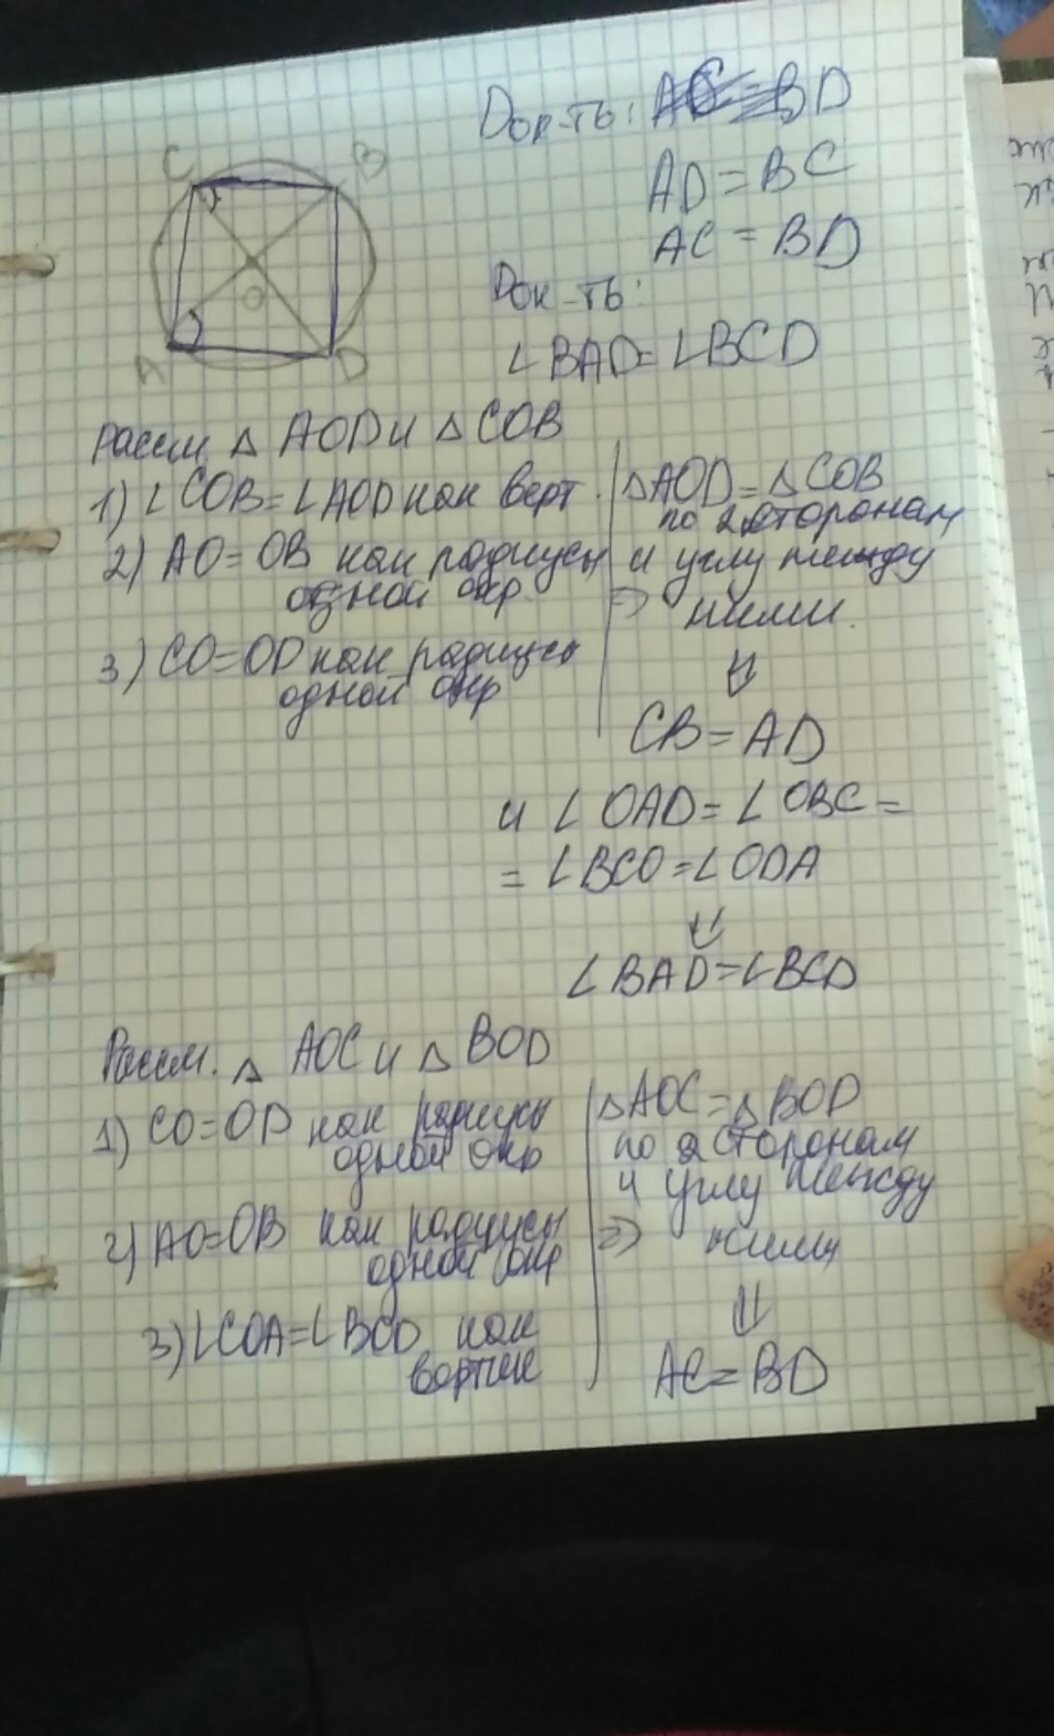 Док-ть: AC = BD
AD = BC
AC = BD
Док-ть:
∠BAD = ∠BCD
C B
O
A D
Рассм. △ AOD и △ COB
1) ∠COB = ∠AOD как верт.
2) AO = OB как радиусы
одной окр
3) CO = OD как радиусы
одной окр
△AOD = △COB
по 2 сторонам
и углу между
⇒ ними.
⇓
CB = AD
и ∠OAD = ∠OBC =
= ∠BCO = ∠ODA
⇓
∠BAD = ∠BCD
Рассм. △ AOC и △ BOD
1) CO = OD как радиусы
одной окр
2) AO = OB как радиусы
одной окр
3) ∠COA = ∠BOD как
△AOC = △BOD
по 2 сторонам
и углу между
⇒ ними
⇓
AC = BD